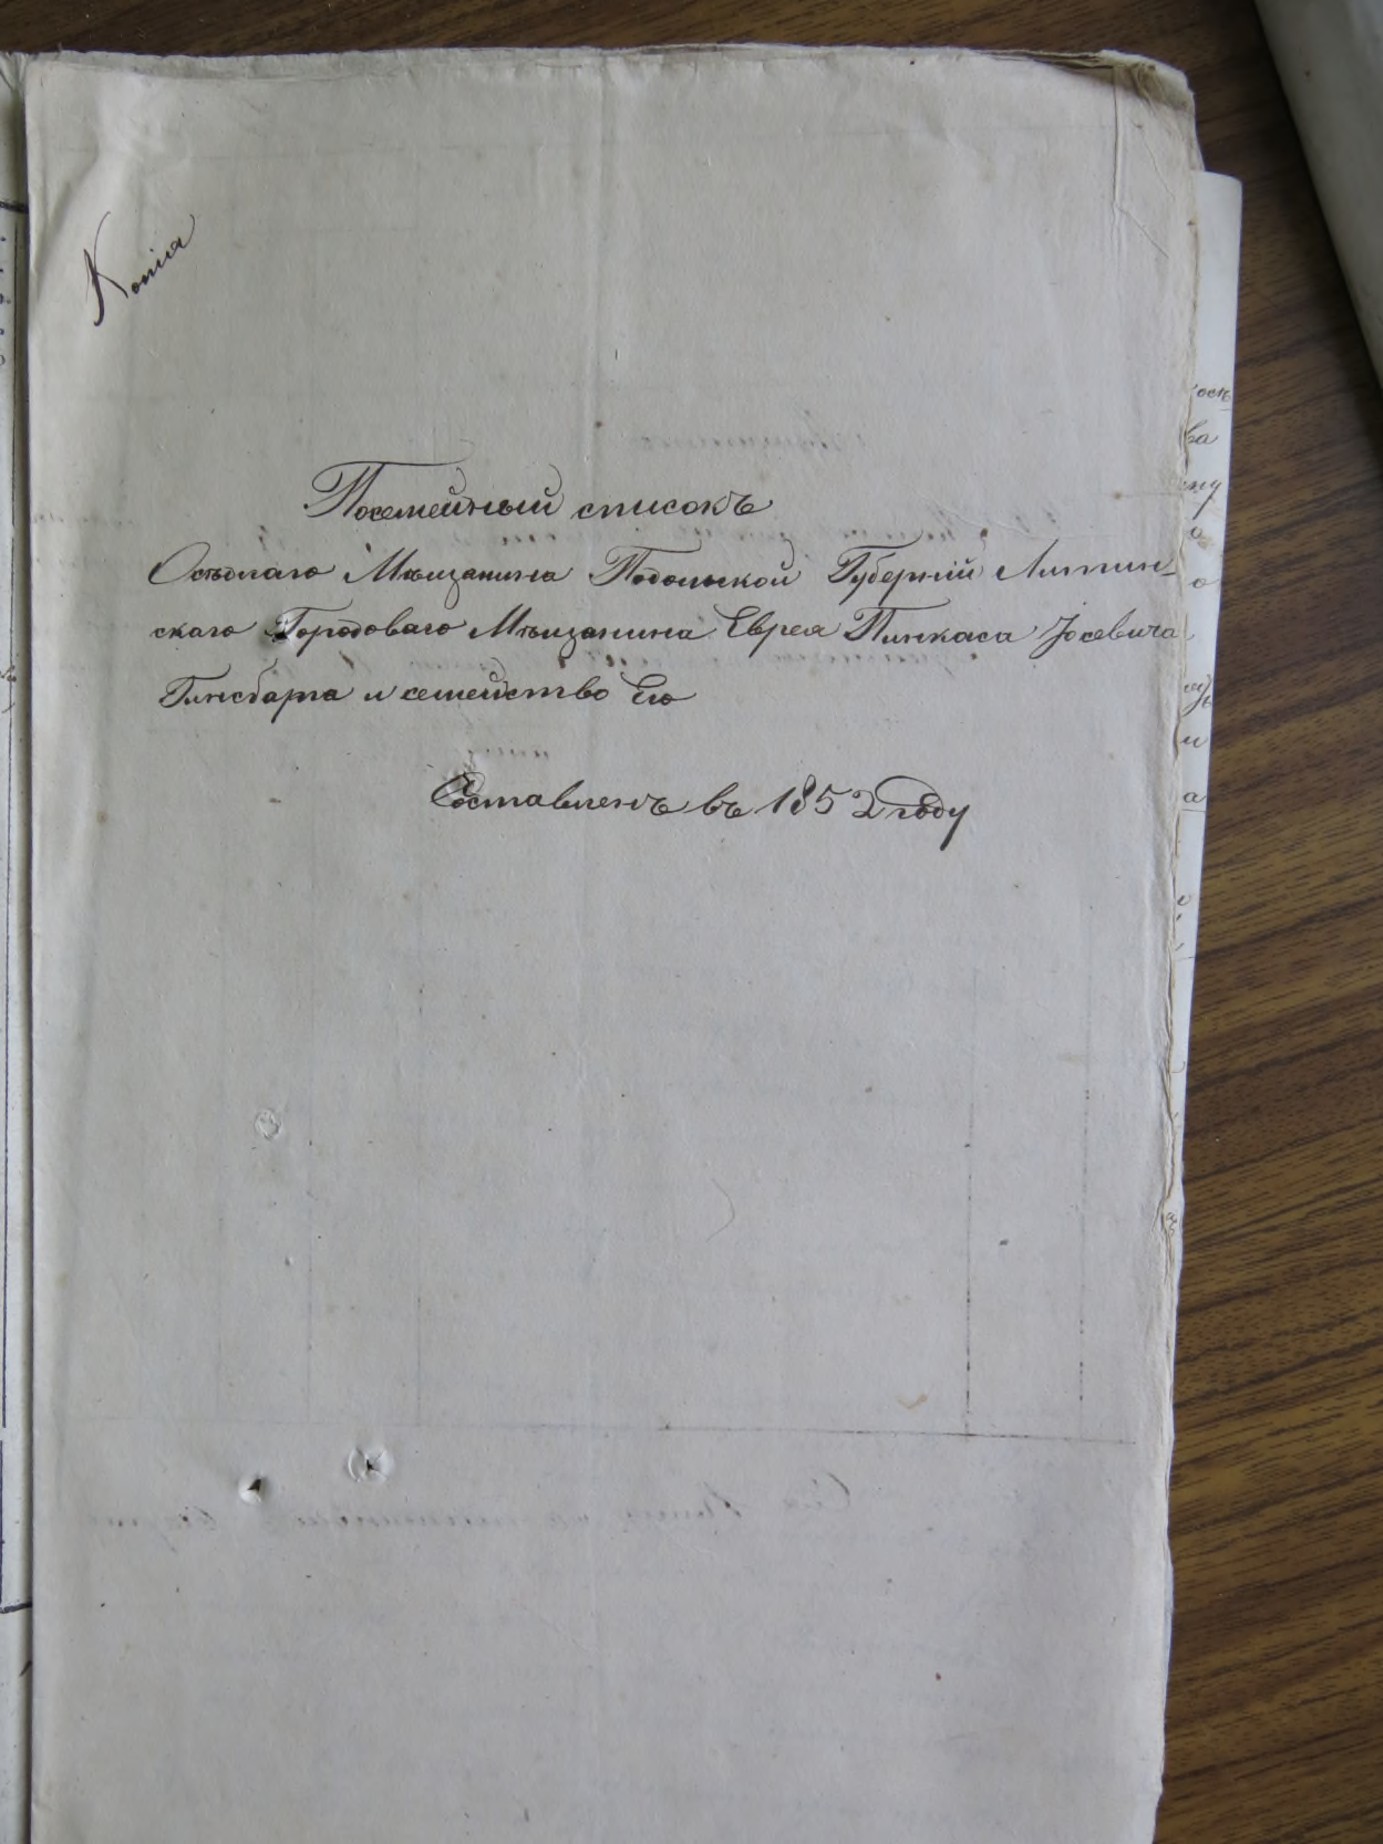 Копія
Посемейный списокъ
Осѣдлаго Мѣщанина Подольской Губерніи Литин-
скаго Городоваго Мѣщанина Еврея Пинкаса Іосевича
Гинсбарга и семейство Его
Составленъ въ 1852 году